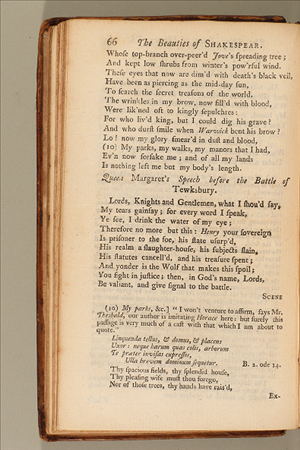 66 The Beauties of SHAKESPEAR.
Whose top-branch over-peer'd Jove's spreading tree;
And kept low shrubs from winter's pow'rful wind.
These eyes that now are dim'd with death's black veil,
Have been as piercing as the mid-day sun,
To search the secret treasons of the world.
The wrinkles in my brow, now fill'd with blood,
Were lik'ned oft to kingly sepulchres:
For who liv'd king, but I could dig his grave?
And who durst smile when Warwick bent his brow?
Lo! now my glory smear'd in dust and blood,
(10) My parks, my walks, my manors that I had,
Ev'n now forsake me; and of all my lands
Is nothing left me but my body's length.
Queen Margaret's Speech before the Battle of
Tewksbury.
Lords, Knights and Gentlemen, what I shou'd say,
My tears gainsay; for every word I speak,
Ye see, I drink the water of my eye;
Therefore no more but this: Henry your sovereign
Is prisoner to the foe, his state usurp'd,
His realm a slaughter-house, his subjects slain,
His statutes cancell'd, and his treasure spent;
And yonder is the Wolf that makes this spoil;
You fight in justice: then, in God's name, Lords,
Be valiant, and give signal to the battle.
SCENE
(10) My parks, &c.] "I won't venture to affirm, says Mr.
Theobald, our author is imitating Horace here: but surely this
passage is very much of a cast with that which I am about to
quote."
Linquenda tellus, & domus, & placens
Uxor: neque harum quas colis, arborum
Te præter invisas cupressos,
Ulla brevem dominum sequetur. B. 2. ode 14.
Thy spacious fields, thy splendid house,
Thy pleasing wife must thou forego,
Nor of those trees, thy hands have rais'd,
Ex-